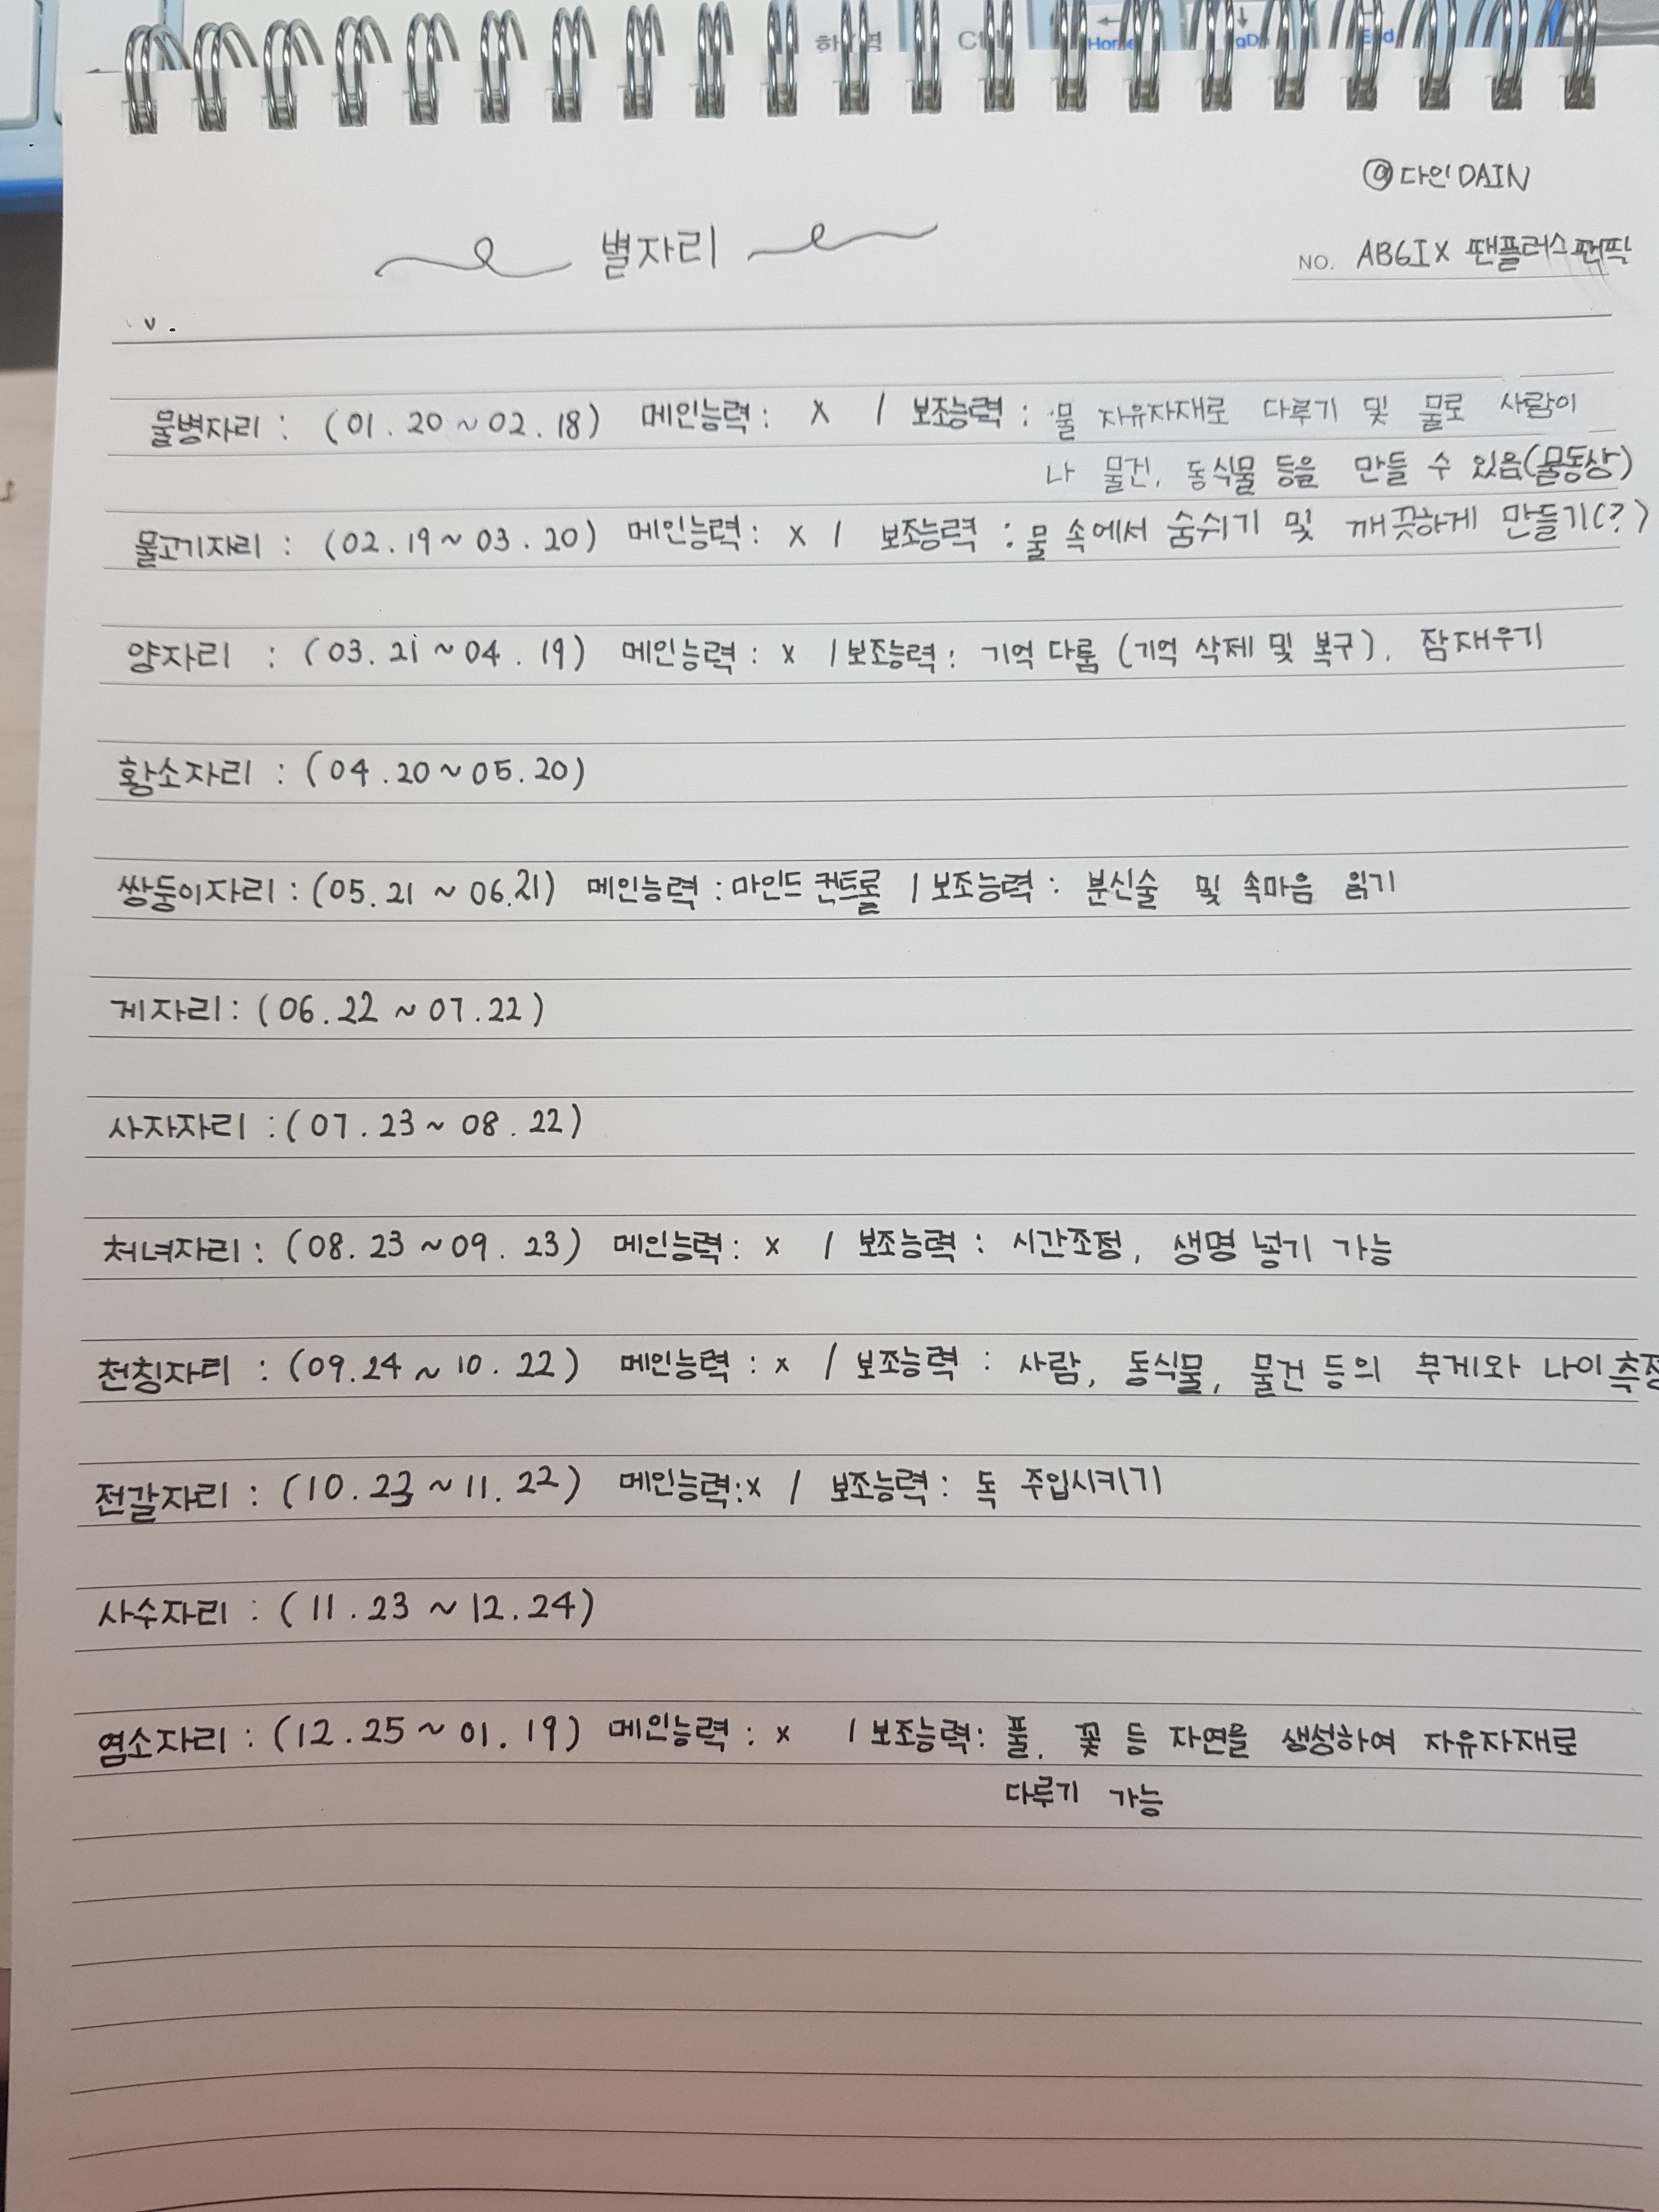 @다인DAIN
별자리
NO. AB6IX 팬플러스팬픽
물병자리 : (01. 20 ~ 02. 18) 메인능력 : X / 보조능력 : 물 자유자재로 다루기 및 물로 사람이
나 물건, 동식물 등을 만들 수 있음(물동상)
물고기자리 : (02. 19 ~ 03. 20) 메인능력 : X / 보조능력 : 물 속에서 숨쉬기 및 깨끗하게 만들기(?)
양자리 : (03. 21 ~ 04. 19) 메인능력 : X / 보조능력 : 기억 다룸 (기억 삭제 및 복구), 잠재우기
황소자리 : (04. 20 ~ 05. 20)
쌍둥이자리 : (05. 21 ~ 06. 21) 메인능력 : 마인드 컨트롤 / 보조능력 : 분신술 및 속마음 읽기
게자리 : (06. 22 ~ 07. 22)
사자자리 : (07. 23 ~ 08. 22)
처녀자리 : (08. 23 ~ 09. 23) 메인능력 : X / 보조능력 : 시간조정, 생명 넣기 가능
천칭자리 : (09. 24 ~ 10. 22) 메인능력 : X / 보조능력 : 사람, 동식물, 물건 등의 무게와 나이 측정
전갈자리 : (10. 23 ~ 11. 22) 메인능력 : X / 보조능력 : 독 주입시키기
사수자리 : (11. 23 ~ 12. 24)
염소자리 : (12. 25 ~ 01. 19) 메인능력 : X / 보조능력 : 풀, 꽃 등 자연을 생성하여 자유자재로
다루기 가능